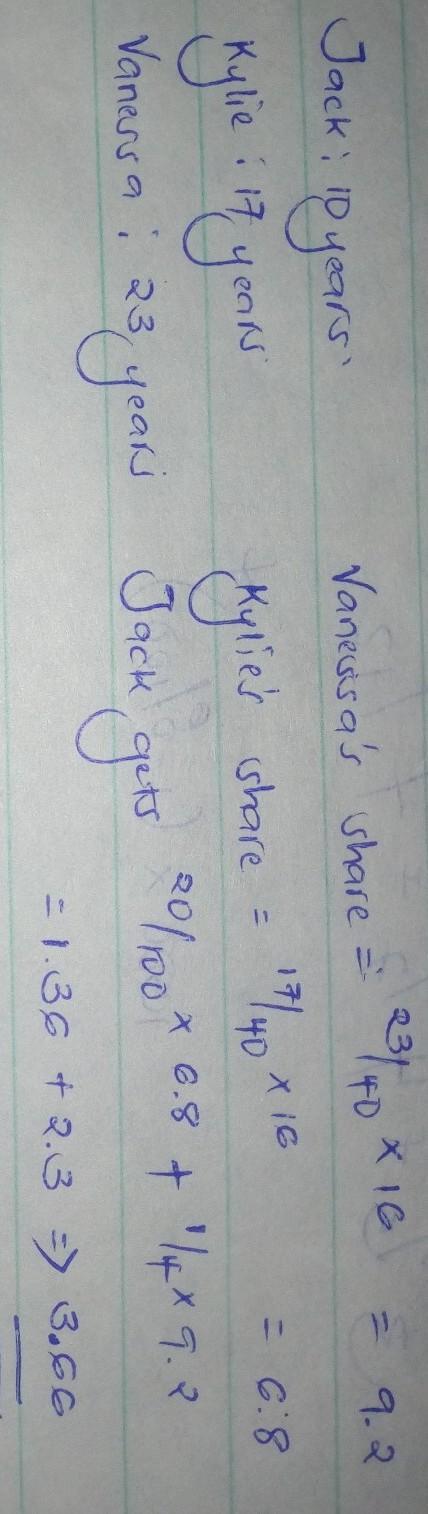 Jack : 10 years.
Kylie : 17 years
Vanessa : 23 years
Vanessa's share = 23/40 × 16 = 9.2
Kylie's share = 17/40 × 16 = 6.8
Jack gets 20/100 × 6.8 + 1/4 × 9.2
= 1.36 + 2.3 => 3.66